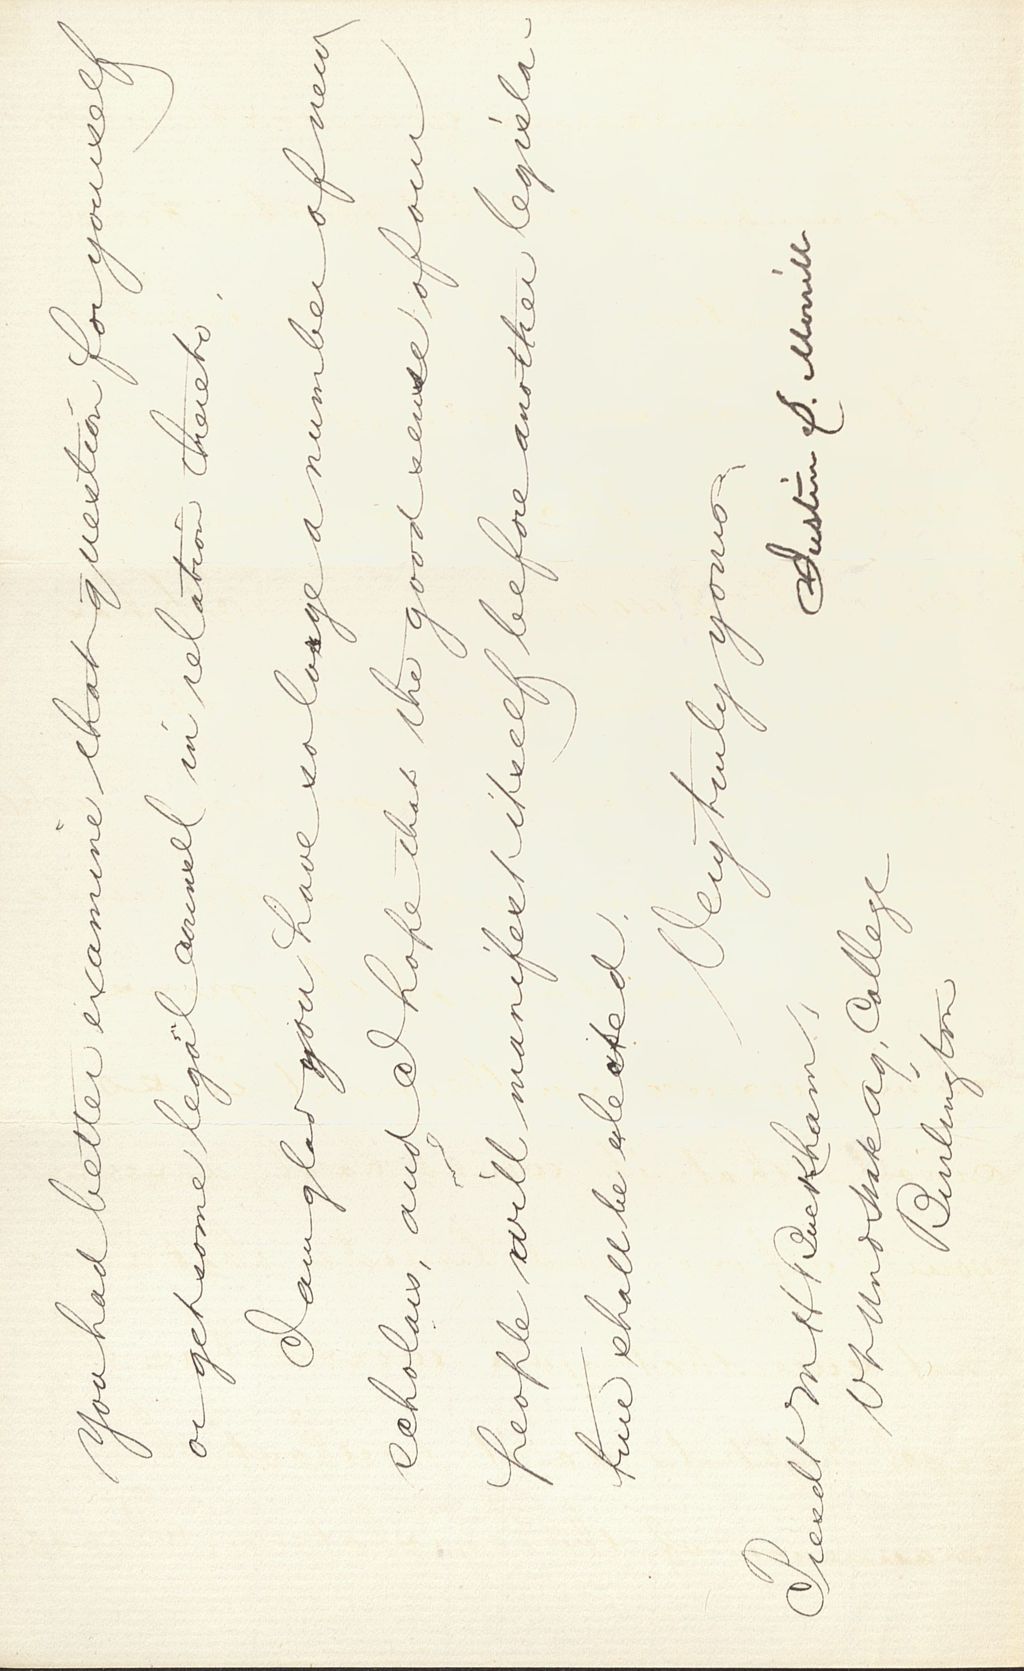 You had better examine that question for yourself
or get some legal counsel in relation thereto.
I am glad you have so large a number of new
scholars, and I hope that the good sense of our
people will manifest itself before another legisla-
ture shall be elected.
Very truly yours
Justin S. Morrill
Presdt M H Buckham,
Vt Und State Ag, College
Burlington